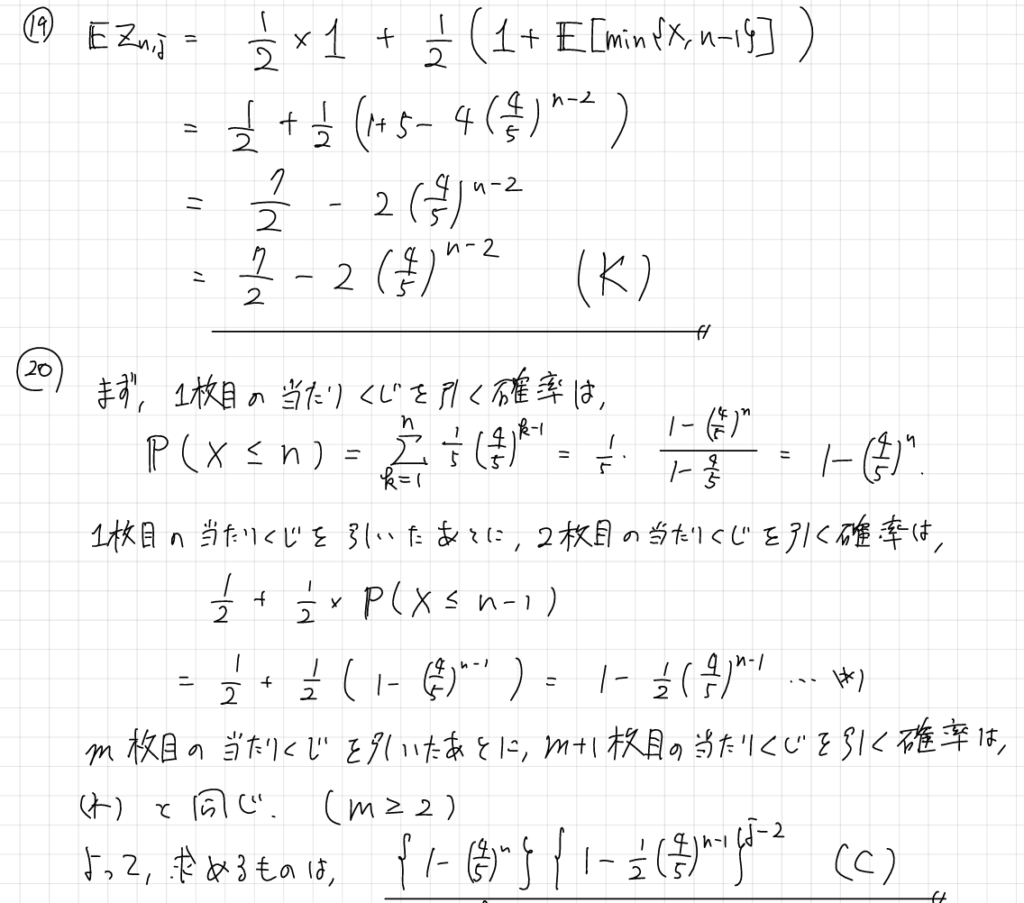 ⑲ 𝔼Z_{n,j} = 1/2 × 1 + 1/2 (1 + 𝔼[min{X, n-1}])
= 1/2 + 1/2 (1+5 - 4(4/5)^{n-2})
= 7/2 - 2(4/5)^{n-2}
= 7/2 - 2(4/5)^{n-2} (K)
⑳ まず, 1枚目の当たりくじを引く確率は,
ℙ(X ≤ n) = Σ_{k=1}^{n} 1/5 (4/5)^{k-1} = 1/5 · (1-(4/5)^n)/(1-4/5) = 1-(4/5)^n.
1枚目の当たりくじを引いたあとに, 2枚目の当たりくじを引く確率は,
1/2 + 1/2 × ℙ(X ≤ n-1)
= 1/2 + 1/2 (1-(4/5)^{n-1}) = 1 - 1/2 (4/5)^{n-1} … (*)
m枚目の当たりくじを引いたあとに, m+1枚目の当たりくじを引く確率は,
(*) と同じ. (m ≥ 2)
よって, 求めるものは, {1-(4/5)^n}{1-1/2(4/5)^{n-1}}^{j-2} (C)